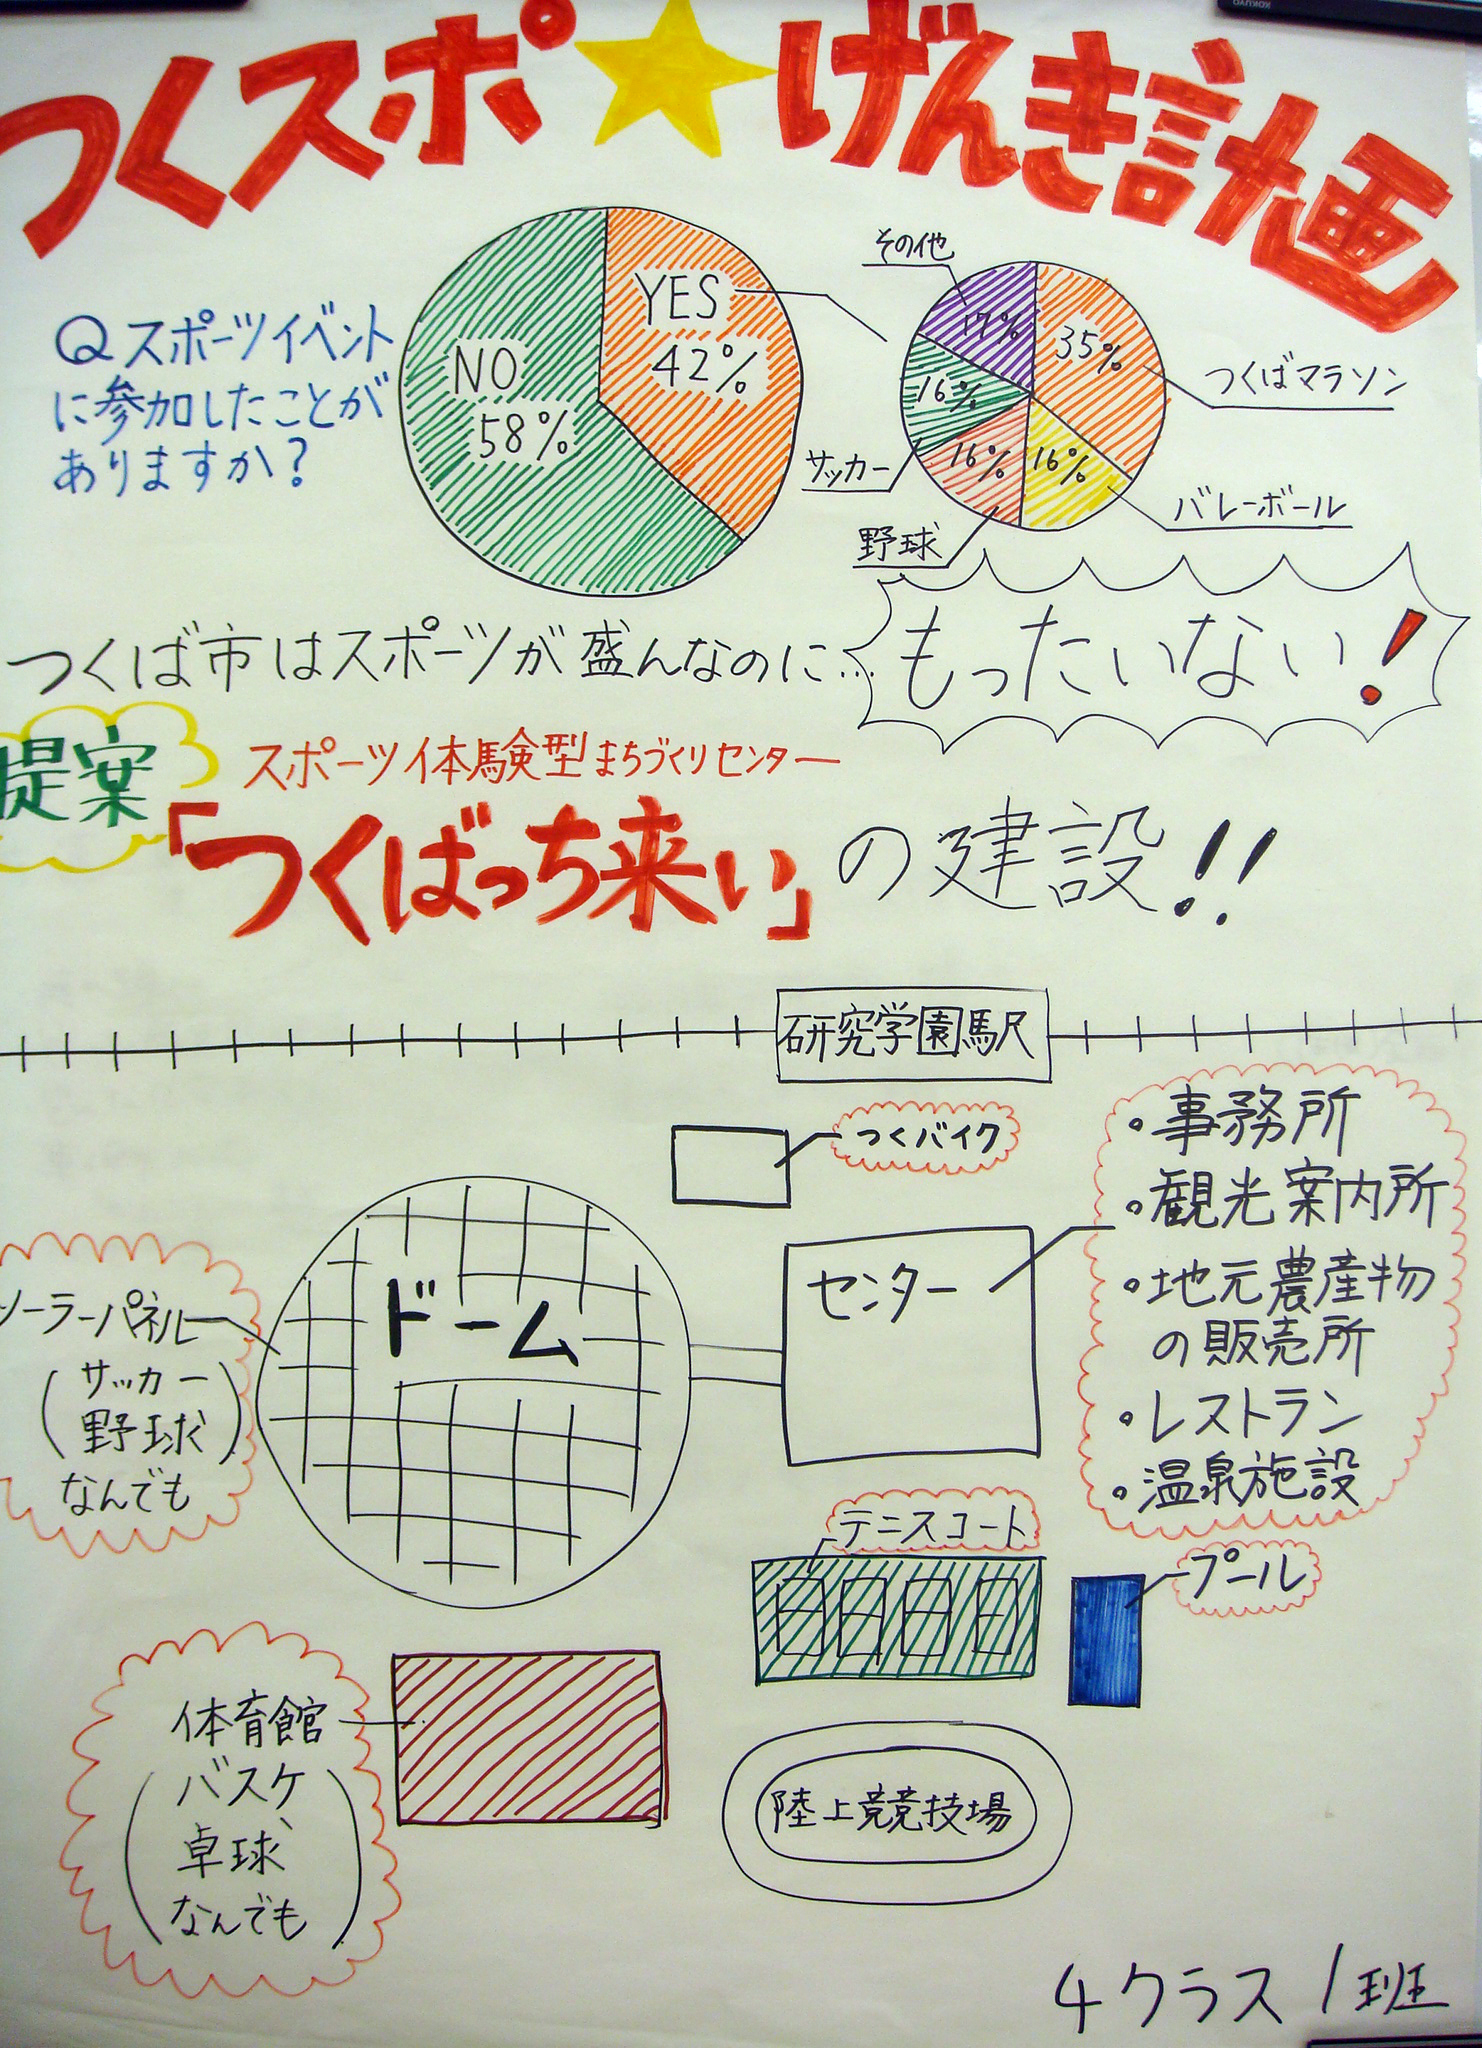 つくスポ★げんき計画
Qスポーツイベント
に参加したことが
ありますか?
NO
58%
YES
42%
その他
17%
35%
つくばマラソン
16%
サッカー
16%
野球
16%
バレーボール
つくば市はスポーツが盛んなのに…
もったいない!
提案
スポーツ体験型まちづくりセンター
「つくばっち来い」の建設!!
研究学園駅
つくバイク
・事務所
・観光案内所
・地元農産物
の販売所
・レストラン
・温泉施設
センター
ドーム
ソーラーパネル
(サッカー
野球)
なんでも
テニスコート
プール
体育館
(バスケ、
卓球
なんでも)
陸上競技場
4クラス1班
KOKUYO